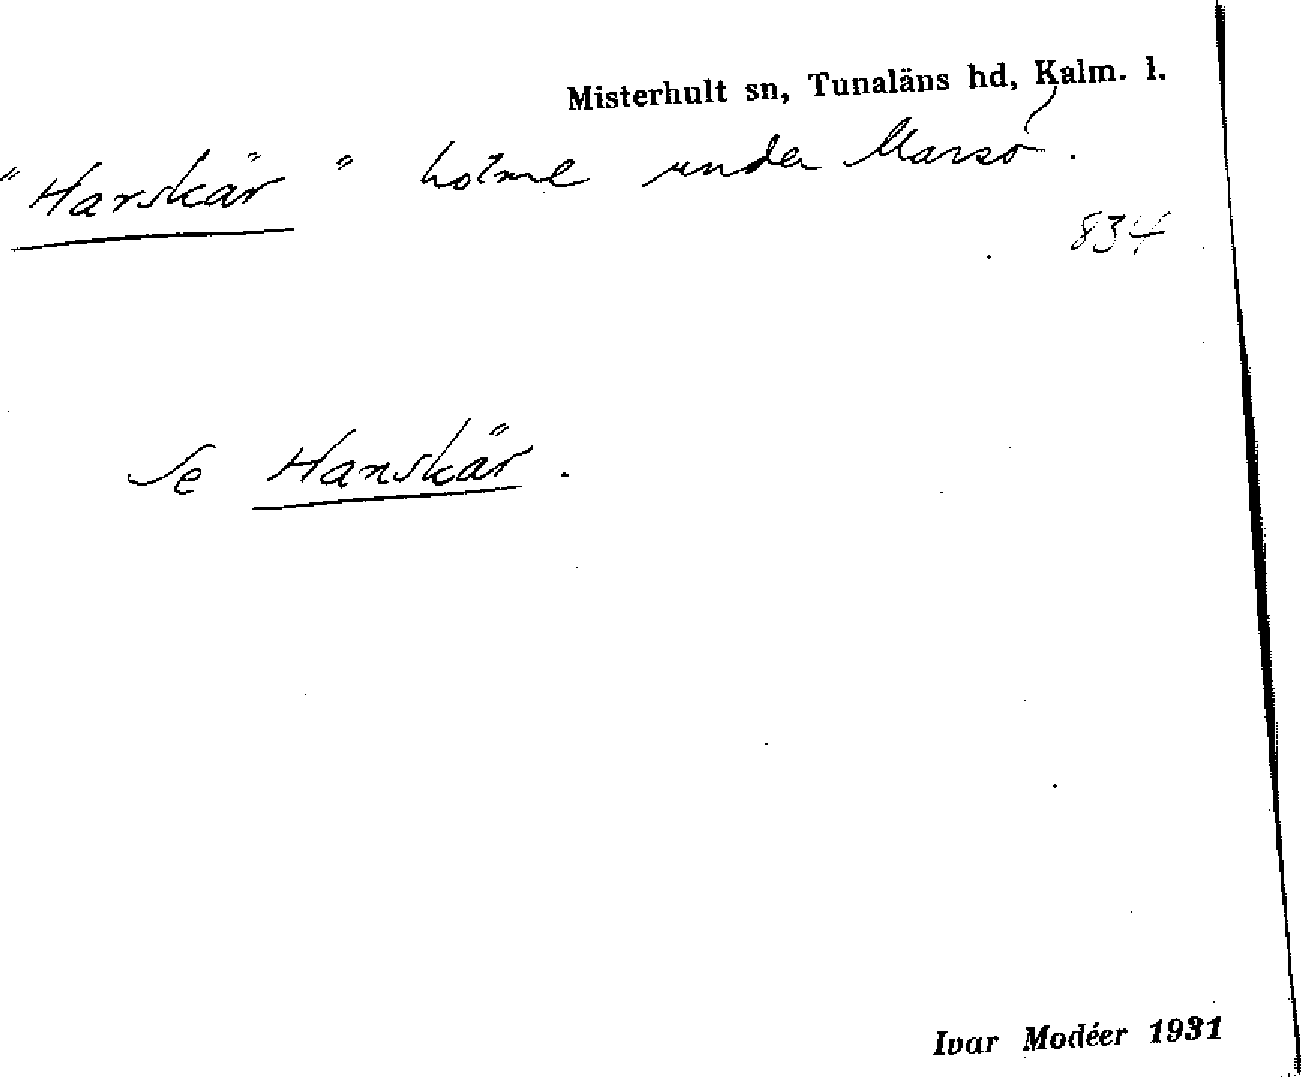 Misterhult sn, Tunaläns hd, Kalm. l.
"Harskär" holme under Marsö.
834
Se Hanskär.
Ivar Modéer 1931